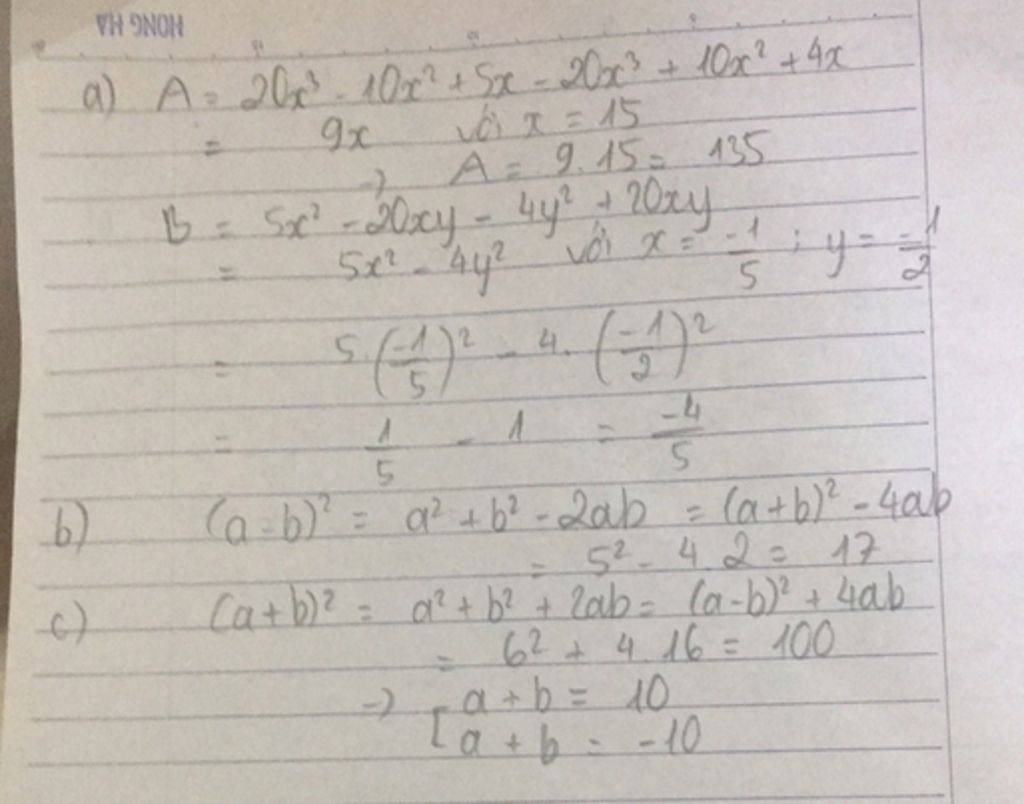 HONG HA
a) A = 20x³ - 10x² + 5x - 20x³ + 10x² + 4x
= 9x với x = 15
→ A = 9.15 = 135
B = 5x² - 20xy - 4y² + 20xy
= 5x² - 4y² với x = -1/5 ; y = -1/2
= 5.(-1/5)² - 4.(-1/2)²
= 1/5 - 1 = -4/5
b) (a-b)² = a² + b² - 2ab = (a+b)² - 4ab
= 5² - 4.2 = 17
c) (a+b)² = a² + b² + 2ab = (a-b)² + 4ab
= 6² + 4.16 = 100
→ [ a + b = 10
a + b = -10